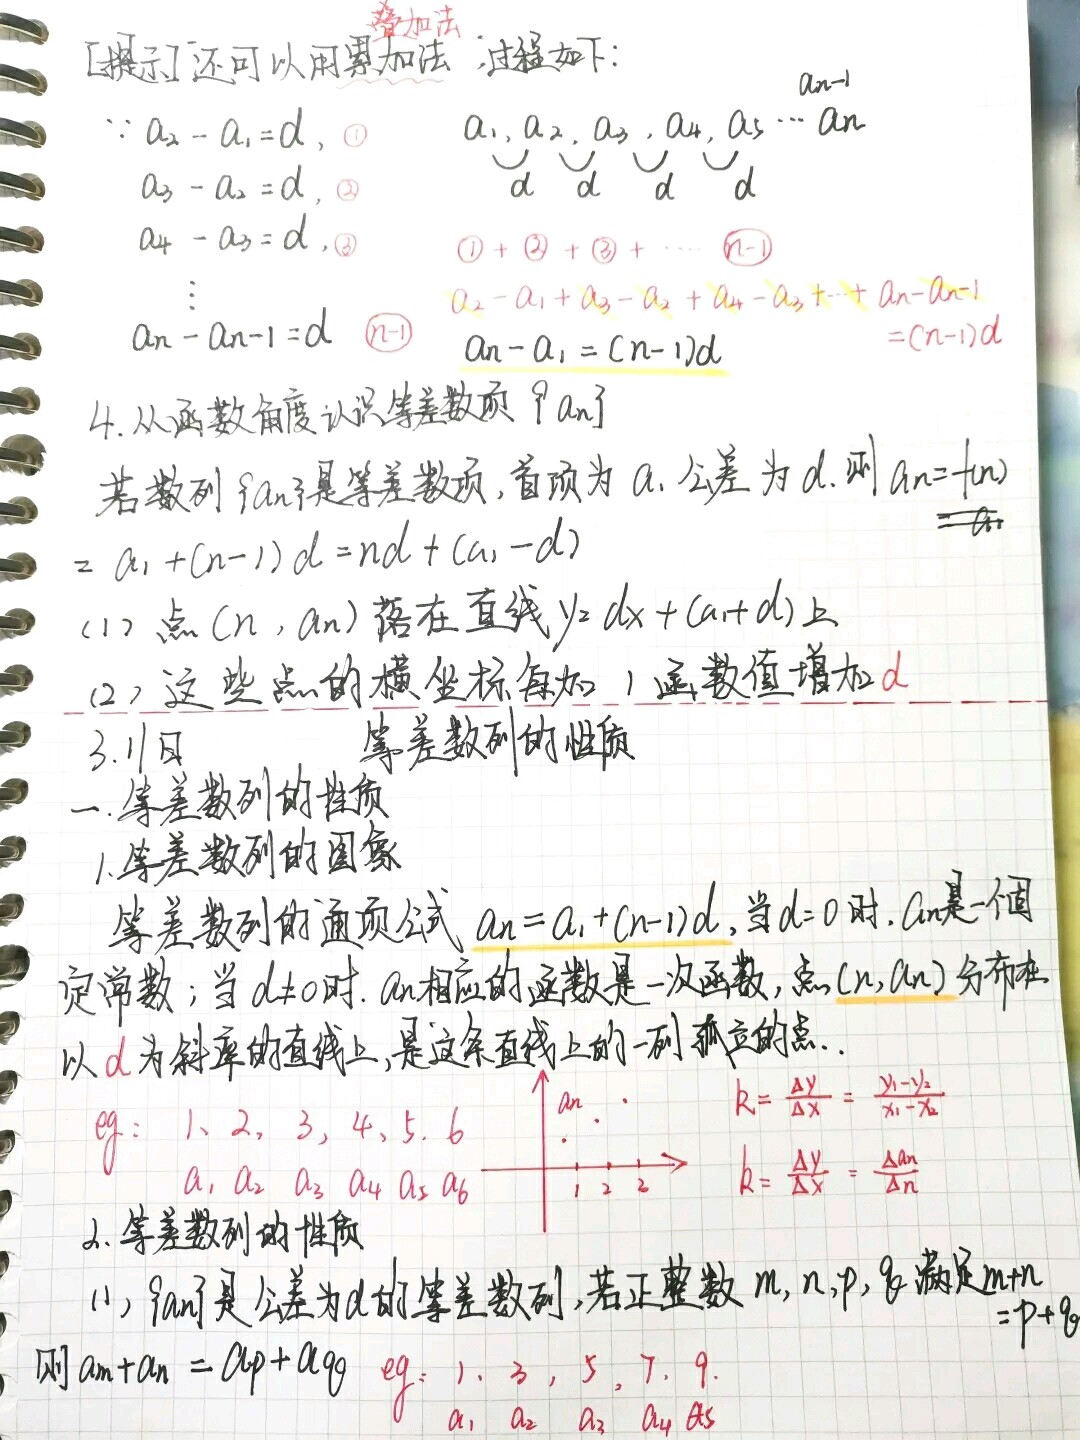 叠加法
[提示]还可以用累加法,过程如下:
∵ a₂-a₁=d, ①
a₃-a₂=d, ②
a₄-a₃=d, ③
⋮
an-an-1=d (n-1)
an-1
a₁, a₂, a₃, a₄, a₅ … an
d d d d
①+②+③+ …… (n-1)
a₂-a₁+a₃-a₂+a₄-a₃+…+an-an-1
=(n-1)d
an-a₁=(n-1)d
4.从函数角度认识等差数项{an}
若数列{an}是等差数项,首项为a₁公差为d.则an=f(n)
=a₁+(n-1)d=nd+(a₁-d)
(1)点(n,an)落在直线y=dx+(a₁+d)上
(2)这些点的横坐标每加1函数值增加d
3.11日 等差数列的性质
一.等差数列的性质
1.等差数列的图象
等差数列的通项公式an=a₁+(n-1)d,当d=0时.an是一个固
定常数;当d≠0时.an相应的函数是一次函数,点(n,an)分布在
以d为斜率的直线上,是这条直线上的一列孤立的点..
eg: 1、2, 3, 4, 5. 6
a₁ a₂ a₃ a₄ a₅ a₆
an
1 2 3
k=Δy/Δx=y₁-y₂/x₁-x₂
k=Δy/Δx=Δan/Δn
2.等差数列的性质
(1),{an}是公差为d的等差数列,若正整数m,n,p,q满足m+n
=p+q
则am+an=ap+aq eg: 1. 3, 5, 7. 9.
a₁ a₂ a₃ a₄ a₅